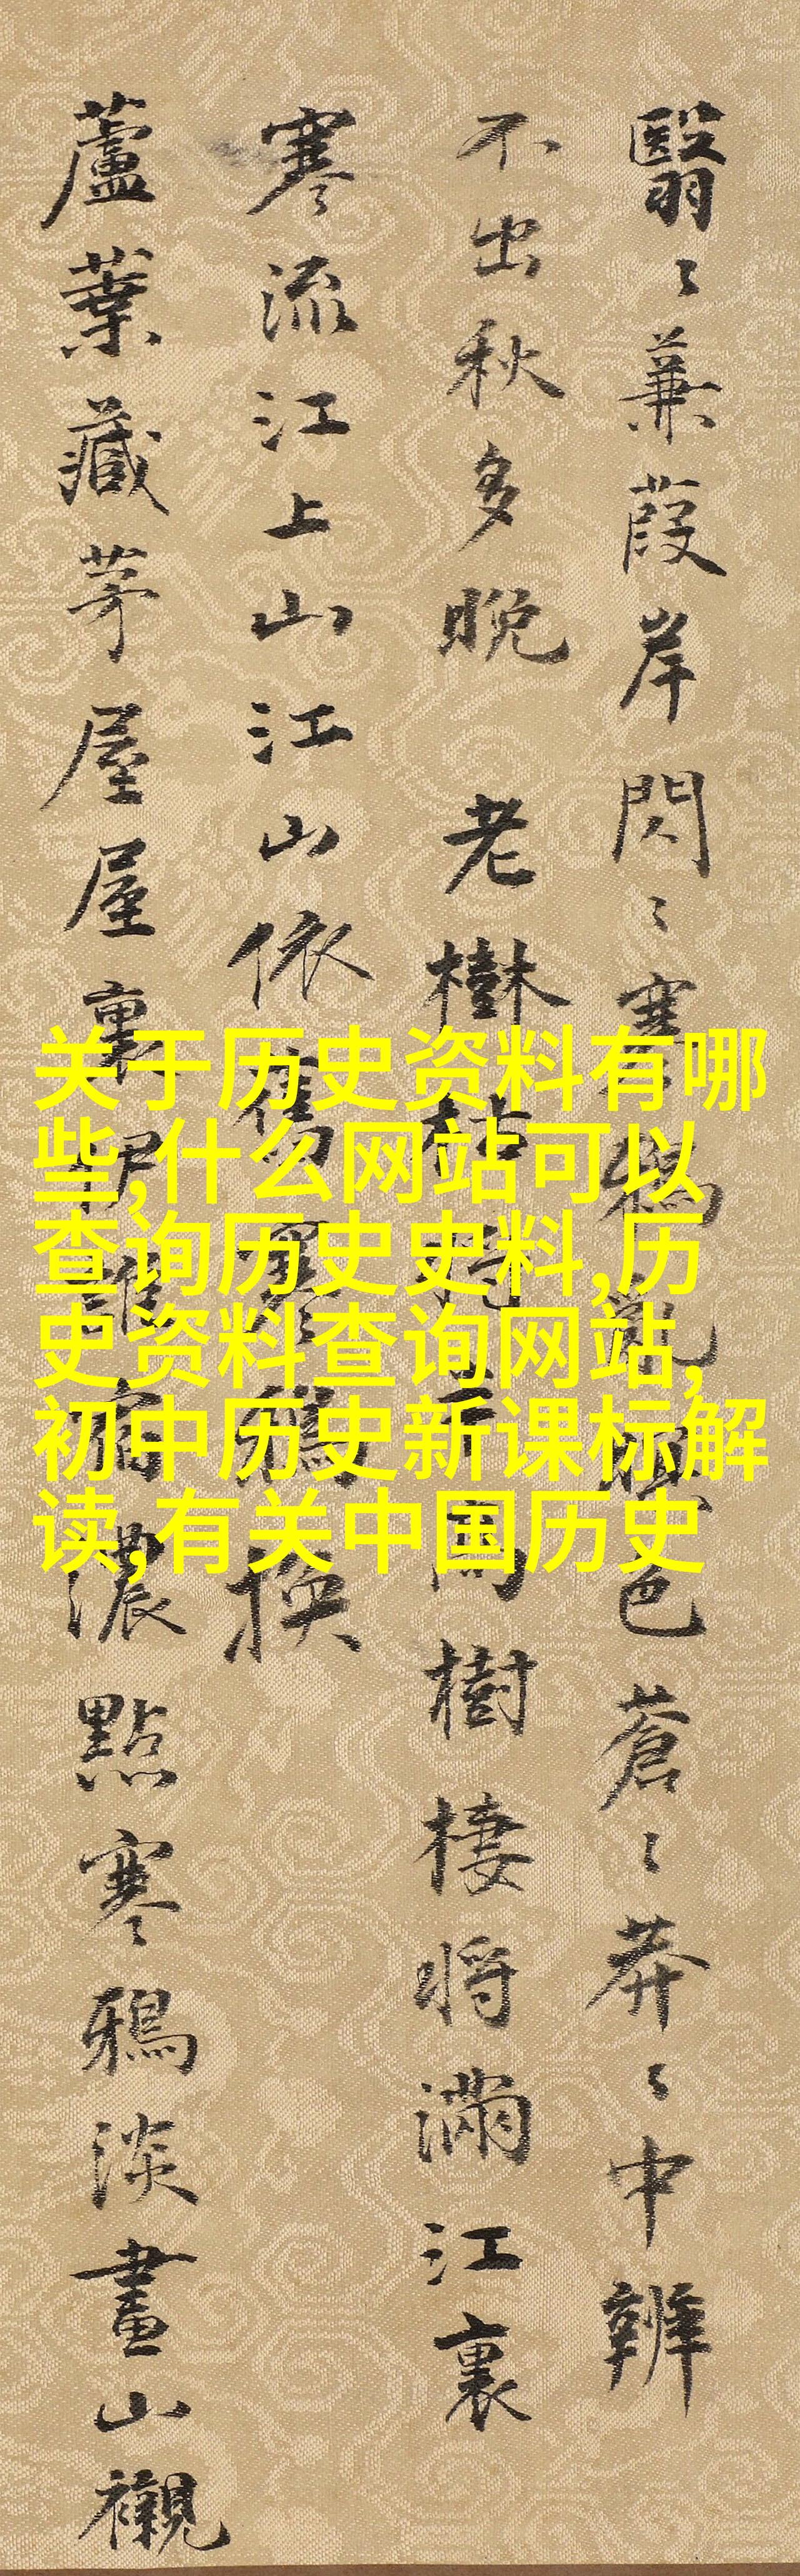 翳〻蒹葭岸閃〻寒鴉亂照色蒼〻莽〻中辨
不出秋多晚 老樹枯將下高樹棲將滿江裏
寒流江上山江山依舊寒鴉換
蘆葉藏茅屋屋裏伊誰宿濃點寒鴉淡畫山襯
关于历史资料有哪
些,什么网站可以
查询历史史料,历
史资料查询网站,
初中历史新课标解
读,有关中国历史